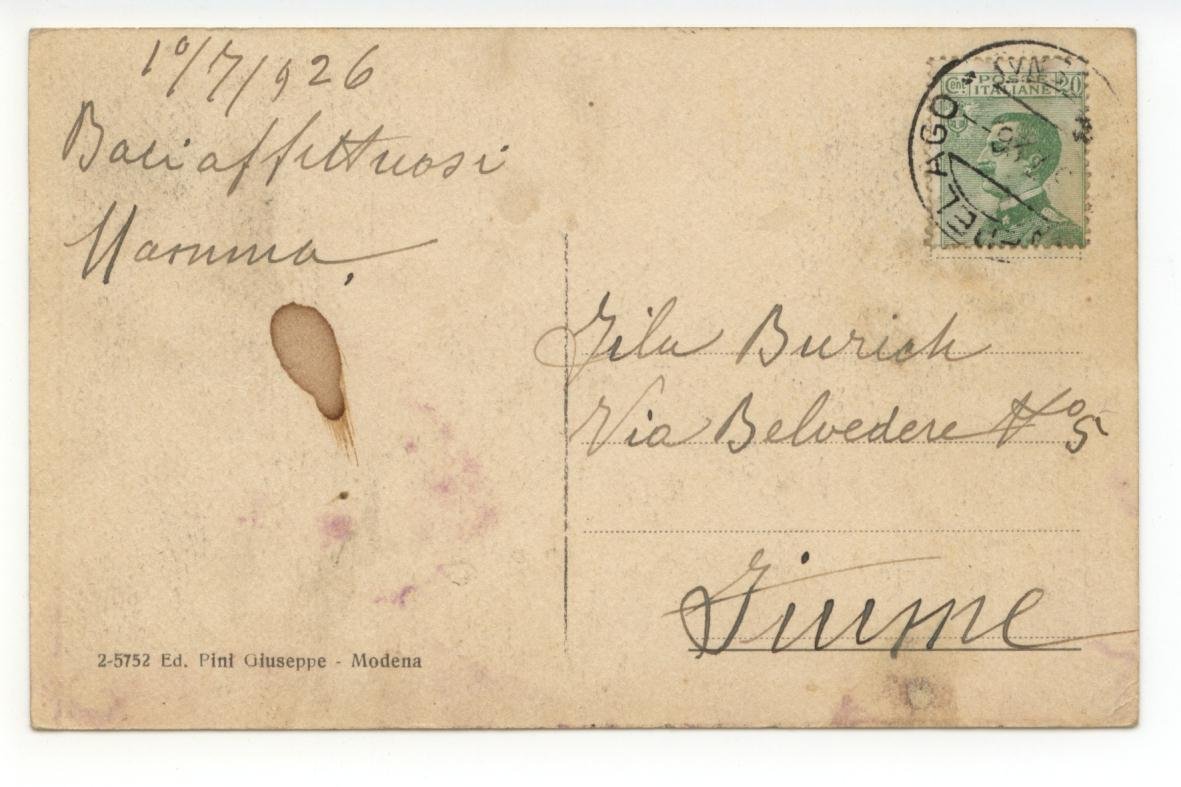 10/7/926
Baci affettuosi
Mamma,
Cent POSTE 20
ITALIANE
AGO
Gila Burich
Via Belvedere No 5
Fiume
2-5752 Ed. Pini Giuseppe - Modena